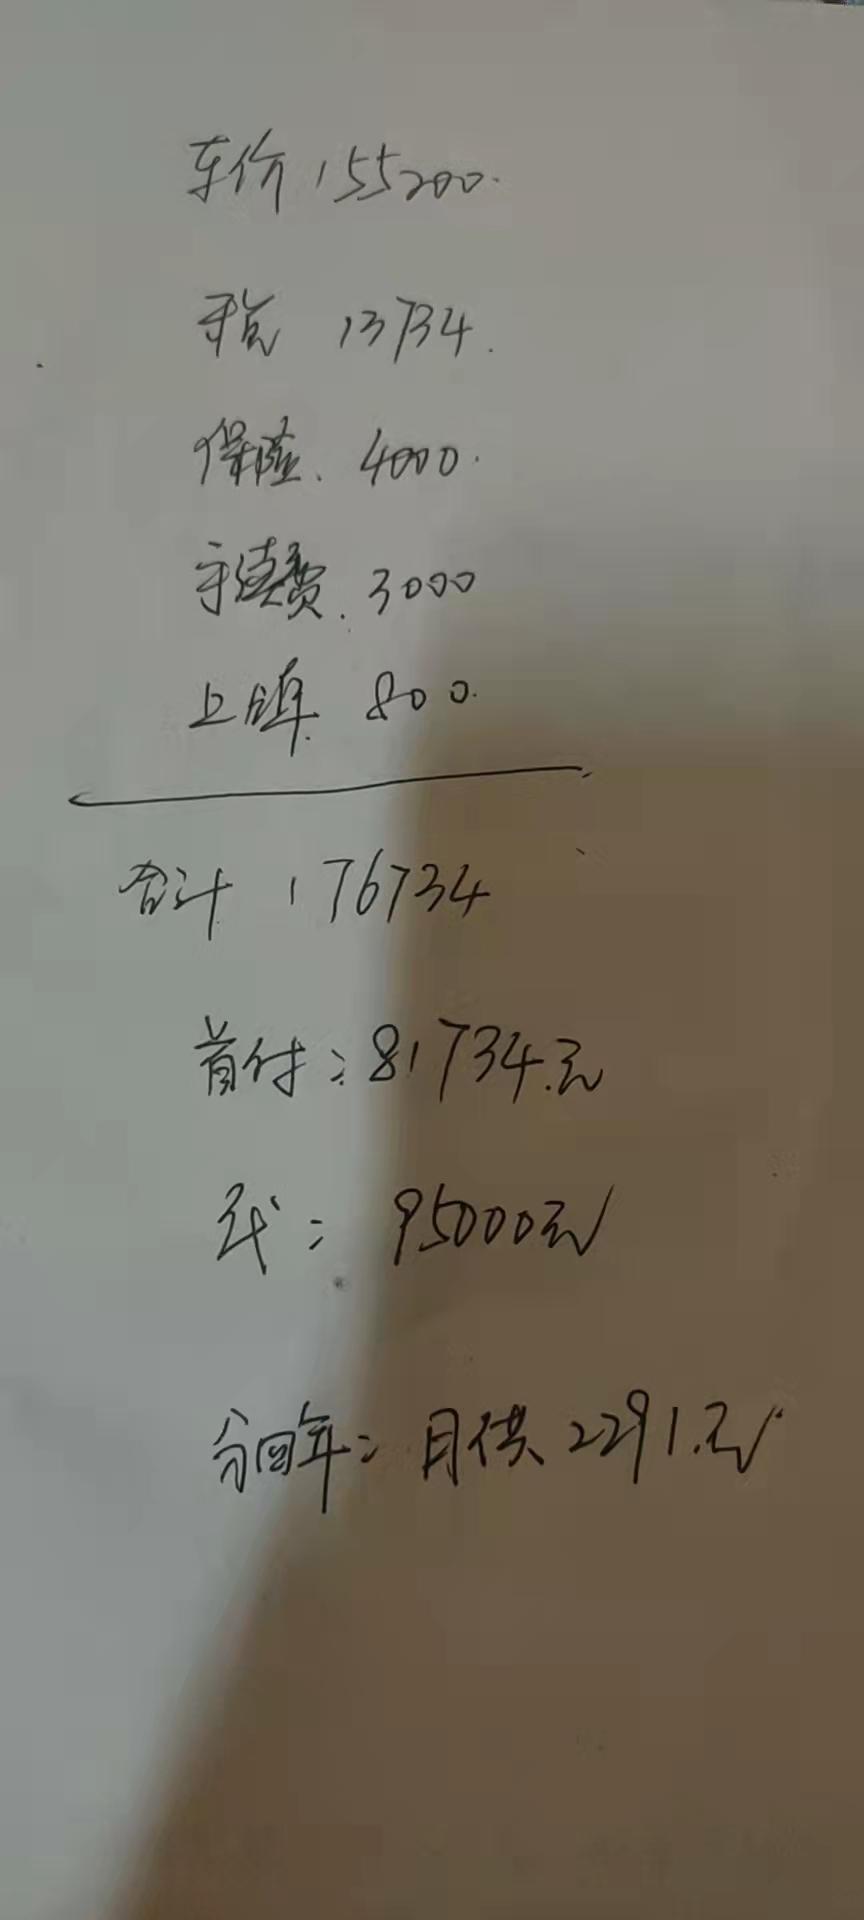 车价 155200.
税 13734.
保险. 4000.
手续费. 3000
上牌. 800.
合计 176734
首付: 81734.元
贷: 95000元
分四年: 月供 2291.元